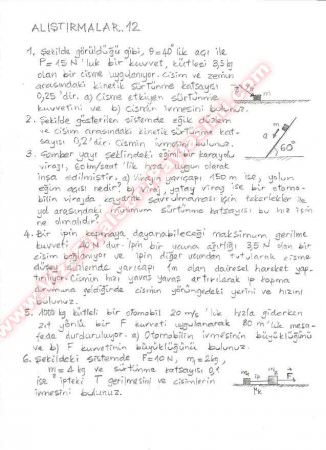 ALIŞTIRMALAR..12
1. Şekilde görüldüğü gibi, θ=40° lik açı ile
P=15 N'luk bir kuvvet, kütlesi 3,5 kg
olan bir cisme uygulanıyor. Cisim ve zemin
arasındaki kinetik sürtünme katsayısı
0,25'dir. a) Cisme etkiyen sürtünme
kuvvetini ve b) Cismin ivmesini bulunuz.
m
2. Şekilde gösterilen sistemde eğik düzlem
ve cisim arasındaki kinetik sürtünme kat-
sayısı 0,2'dir. Cismin ivmesini bulunuz.
a
m
60°
3. Çember yayı şeklindeki eğimli bir karayolu
virajı, 60 km/saat'lik hıza uygun olarak
inşa edilmiştir. a) Virajın yarıçapı 150 m ise, yolun
eğim açısı nedir? b) viraj, yatay viraj ise bir otomo-
bilin virajda kayarak savrulmaması için tekerlekler ile
yol arasındaki minimum sürtünme katsayısı bu hız için
ne olmalıdır?
4. Bir ipin kopmaya dayanabileceği maksimum gerilme
kuvveti N'dur. İpin bir ucuna ağırlığı 3,5 N olan bir
cisim bağlanıyor ve ipin diğer ucundan tutularak cisme
düşey düzlemde yarıçapı 1m olan dairesel hareket yap-
tırılıyor. Cismin hızı yavaş yavaş artırılarak ip kopma
durumuna geldiğinde cismin yörüngedeki yerini ve hızını
bulunuz.
5. 1000 kg kütleli bir otomobil 20 m/s'lik hızla giderken
zıt yönlü bir F kuvveti uygulanarak 80 m'lik mesa-
fede durduruluyor. a) Otomobilin ivmesinin büyüklüğünü
ve b) F kuvvetinin büyüklüğünü bulunuz.
6. Şekildeki sistemde F=10N, m₁=2kg,
m₂=4 kg ve sürtünme katsayısı 0,1
ise ipteki T gerilmesini ve cisimlerin
ivmesini bulunuz.
m₁
ip
m₂
F
μk